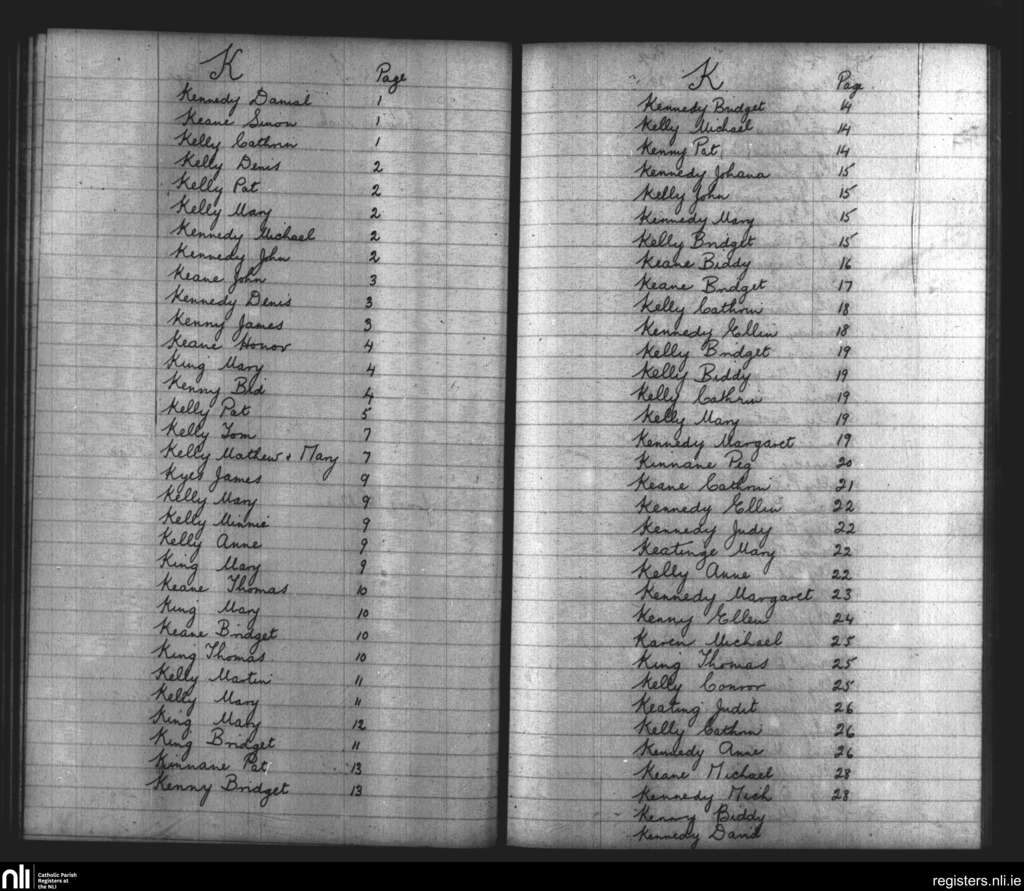 K
Page
Kennedy Danial 1
Keane Simon 1
Kelly Cathrin 1
Kelly Denis 2
Kelly Pat 2
Kelly Mary 2
Kennedy Michael 2
Kennedy John 2
Keane John 3
Kennedy Denis 3
Kenny James 3
Keane Honor 4
King Mary 4
Kenny Bid 4
Kelly Pat 5
Kelly Tom 7
Kelly Mathew + Mary 7
Kyes James 9
Kelly Mary 9
Kelly Minnie 9
Kelly Anne 9
King Mary 9
Keane Thomas 10
King Mary 10
Keane Bridget 10
King Thomas 10
Kelly Martin 11
Kelly Mary 11
King Mary 12
King Bridget 11
Kinnane Pat 13
Kenny Bridget 13
K
Page
Kennedy Bridget 14
Kelly Michael 14
Kenny Pat 14
Kennedy Johana 15
Kelly John 15
Kennedy Mary 15
Kelly Bridget 15
Keane Biddy 16
Keane Bridget 17
Kelly Cathrin 18
Kennedy Ellin 18
Kelly Bridget 19
Kelly Biddy 19
Kelly Cathrin 19
Kelly Mary 19
Kennedy Margaret 19
Kinnane Peg 20
Keane Cathrin 21
Kennedy Ellin 22
Kennedy Judy 22
Keatinge Mary 22
Kelly Anne 22
Kennedy Margaret 23
Kenny Ellen 24
Karen Michael 25
King Thomas 25
Kelly Connor 25
Keating Judit 26
Kelly Cathrin 26
Kennedy Anne 26
Keane Michael 28
Kennedy Mich 28
Kenny Biddy
Kennedy Danl
nli
Catholic Parish
Registers at
the NLI
registers.nli.ie